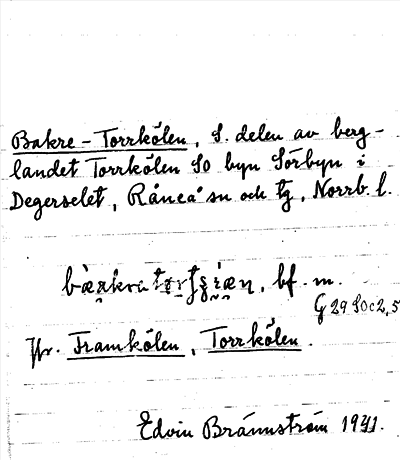 Bakre-Torrkölen, S. delen av berg-
landet Torrkölen SO byn Sörbyn i
Degerselet, Råneå sn och tg, Norrb. l.
bf. m.
G 29 SOc 2,5
Jfr. Framkölen, Torrkölen.
Edvin Brännström 1941.